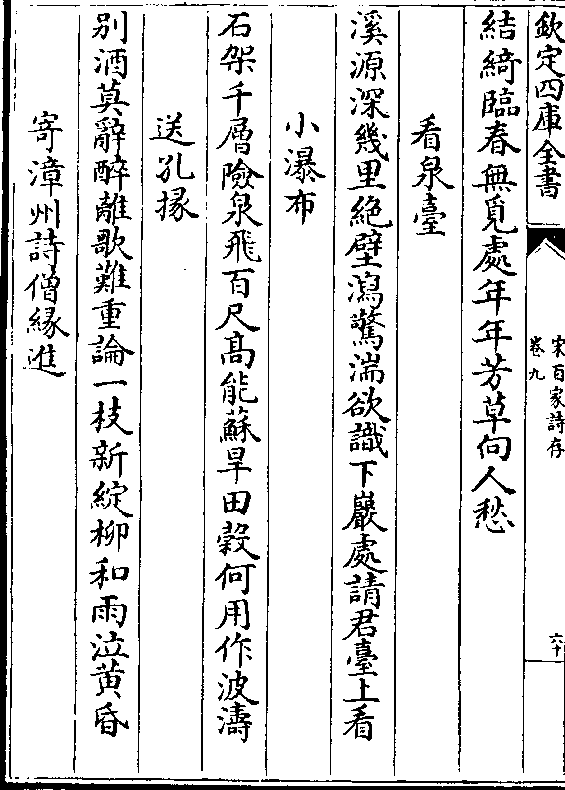 欽定四庫全書
宋百家詩存
卷九
六十
結綺臨春無覓處年年芳草向人愁
看泉臺
溪源深幾里絶壁瀉驚湍欲識下巖處請君臺上看
小瀑布
石架千層險泉飛百尺髙能蘇旱田穀何用作波濤
送孔掾
别酒莫辭醉離歌難重論一枝新綻柳和雨泣黄昏
寄漳州詩僧緣進